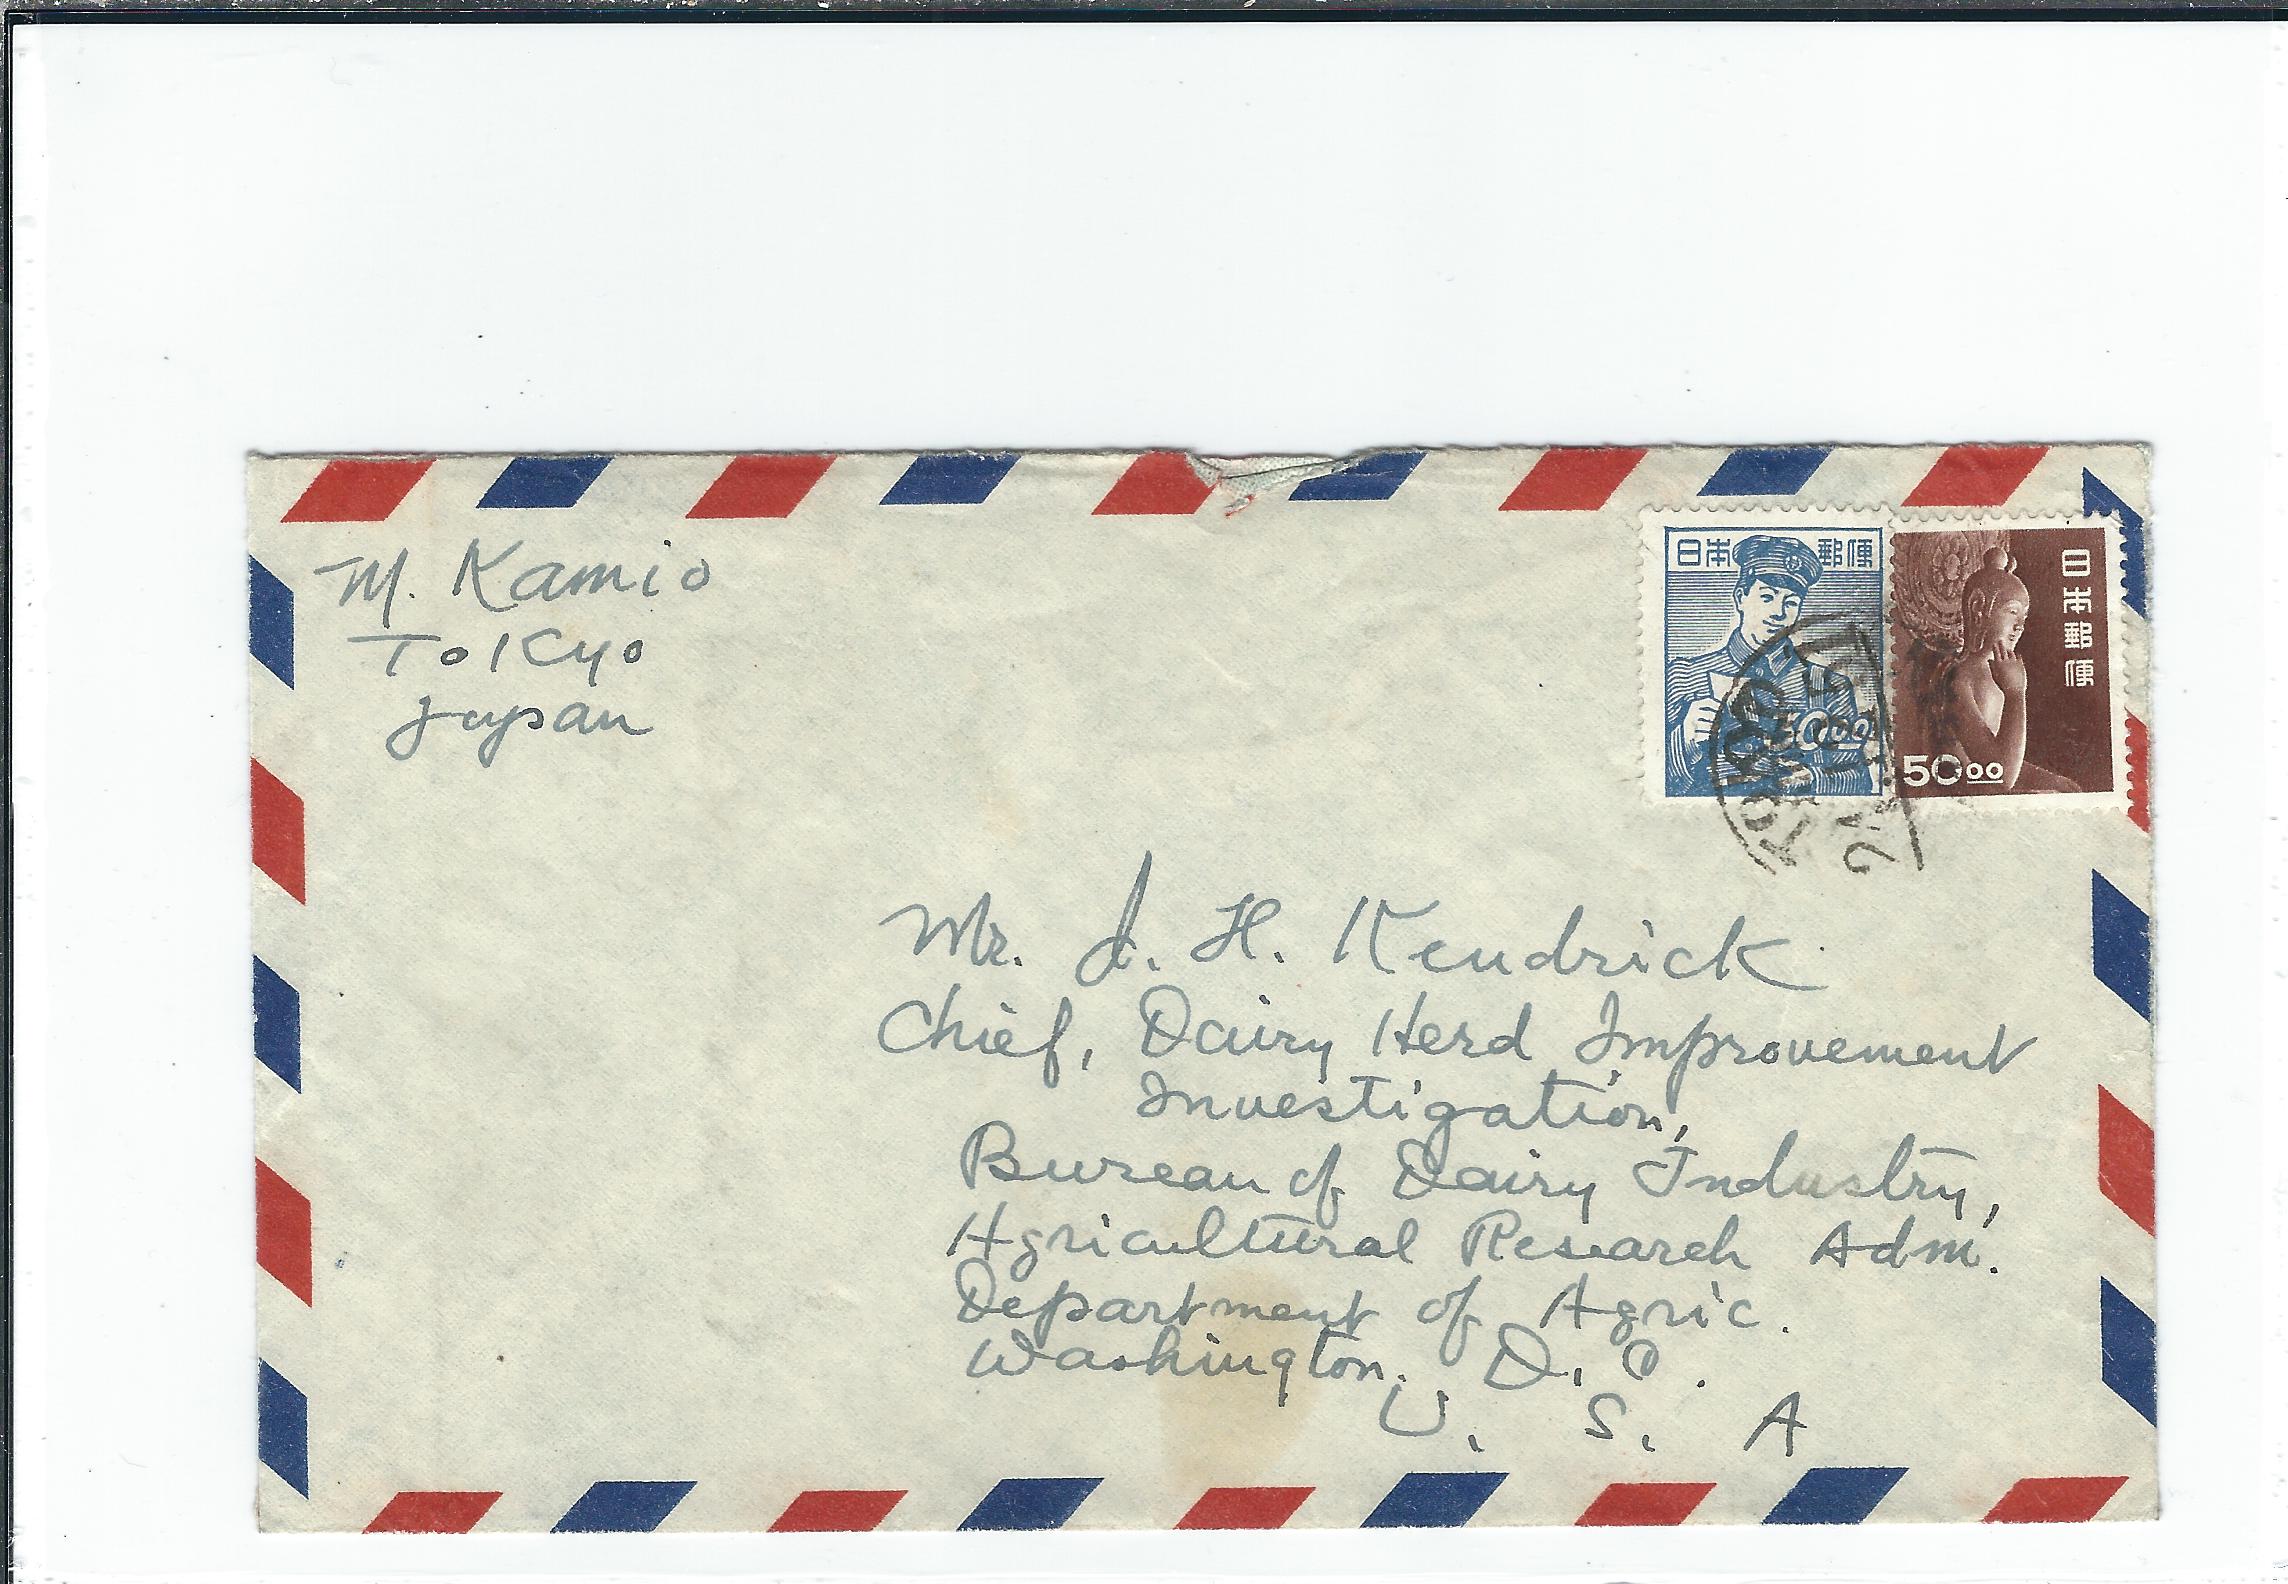 M. Kamio
Tokyo
Japan
日本郵便
00
日本郵便
50.00
Mr. J. H. Kendrick
Chief, Dairy Herd Improvement
Investigation,
Bureau of Dairy Industry,
Agricultural Research Adm.
Department of Agric.
Washington, D. C.
U. S. A